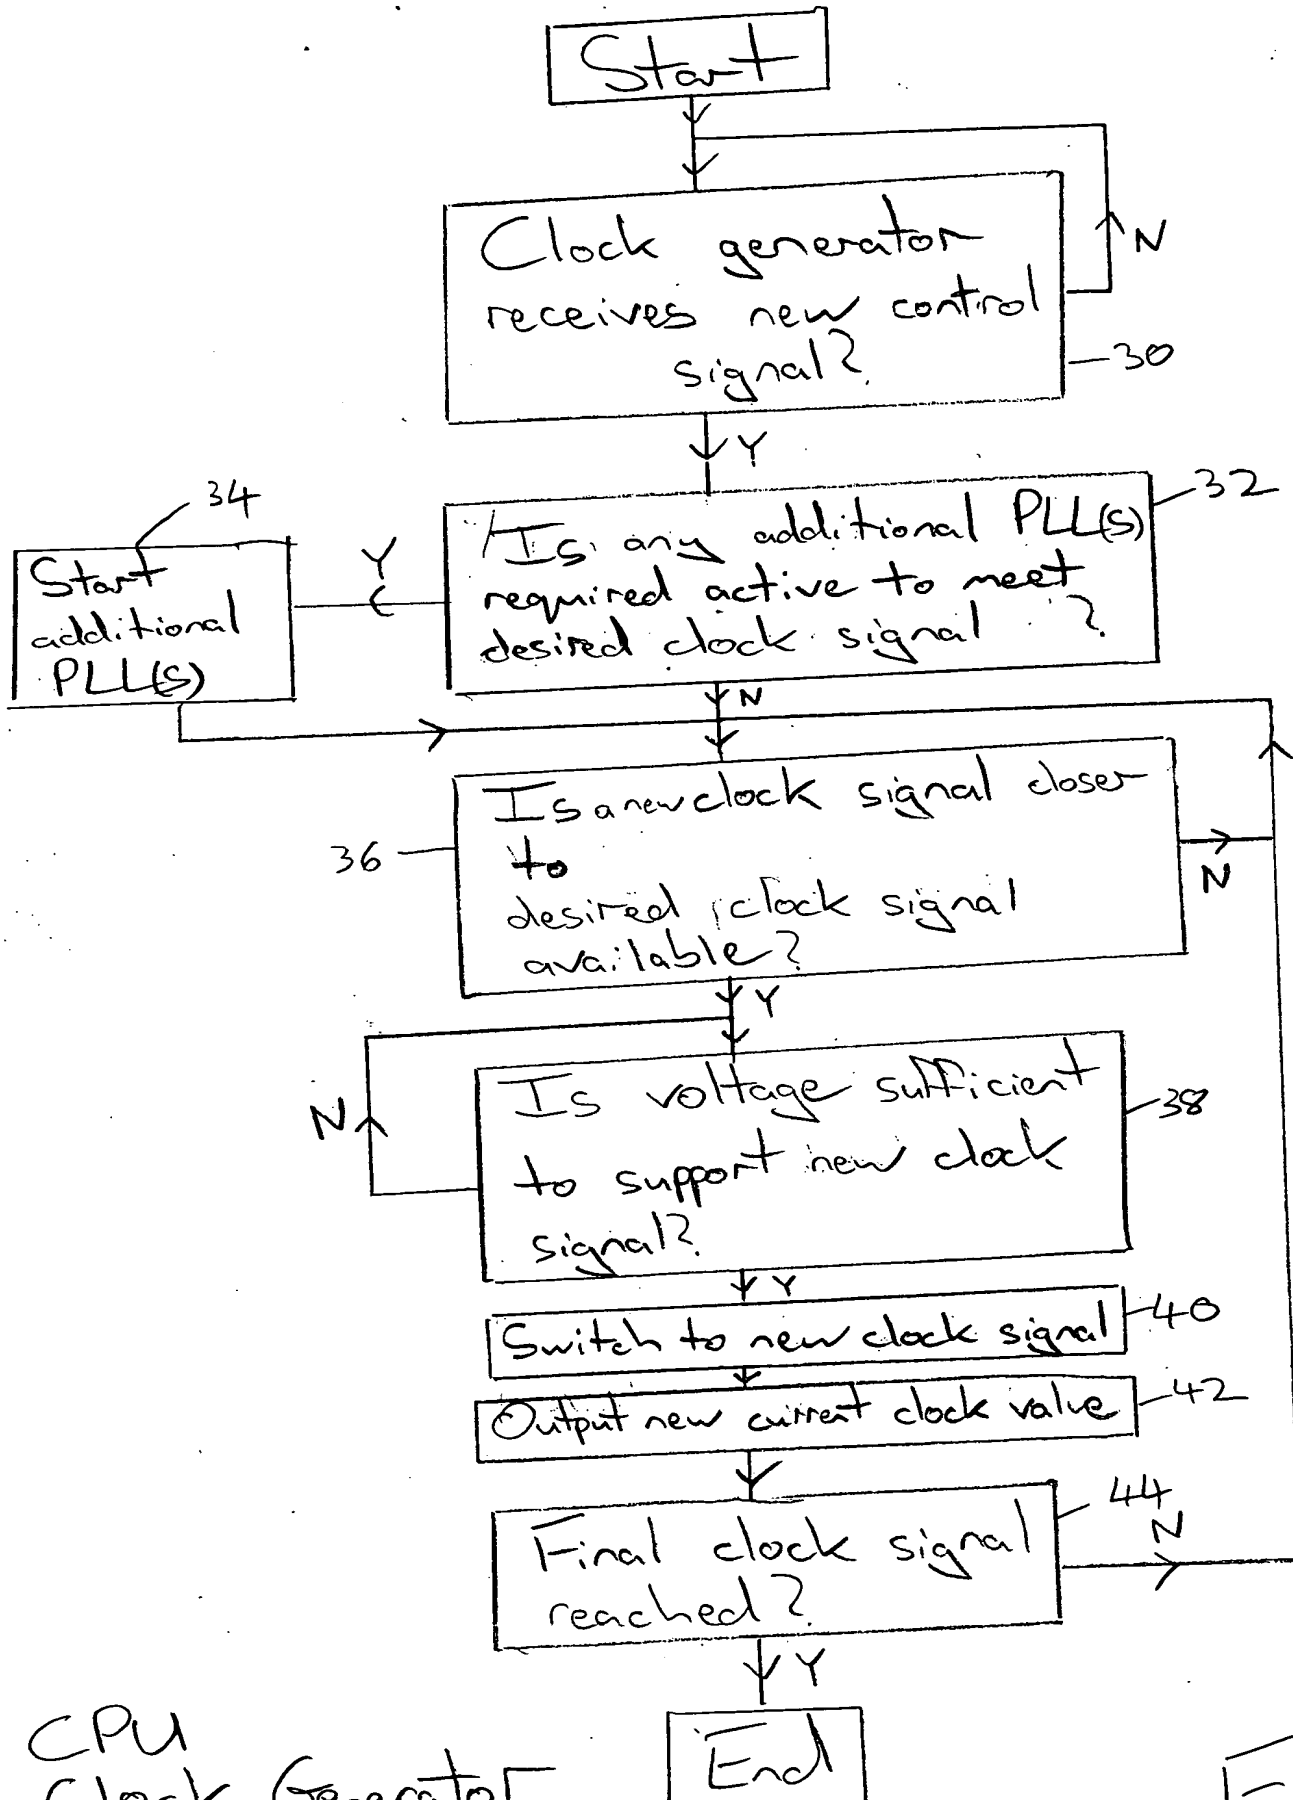 Start
Clock generator
receives new control
signal?
N
30
Y
34
32
Start
additional
PLL(s)
Y
Is any additional PLL(s)
required active to meet
desired clock signal ?
N
36
Is a new clock signal closer
to
desired clock signal
available?
N
Y
N
Is voltage sufficient
to support new clock
signal?
38
Y
Switch to new clock signal
40
Output new current clock value
42
Final clock signal
reached?
44
N
Y
End
CPU
Clock Generator